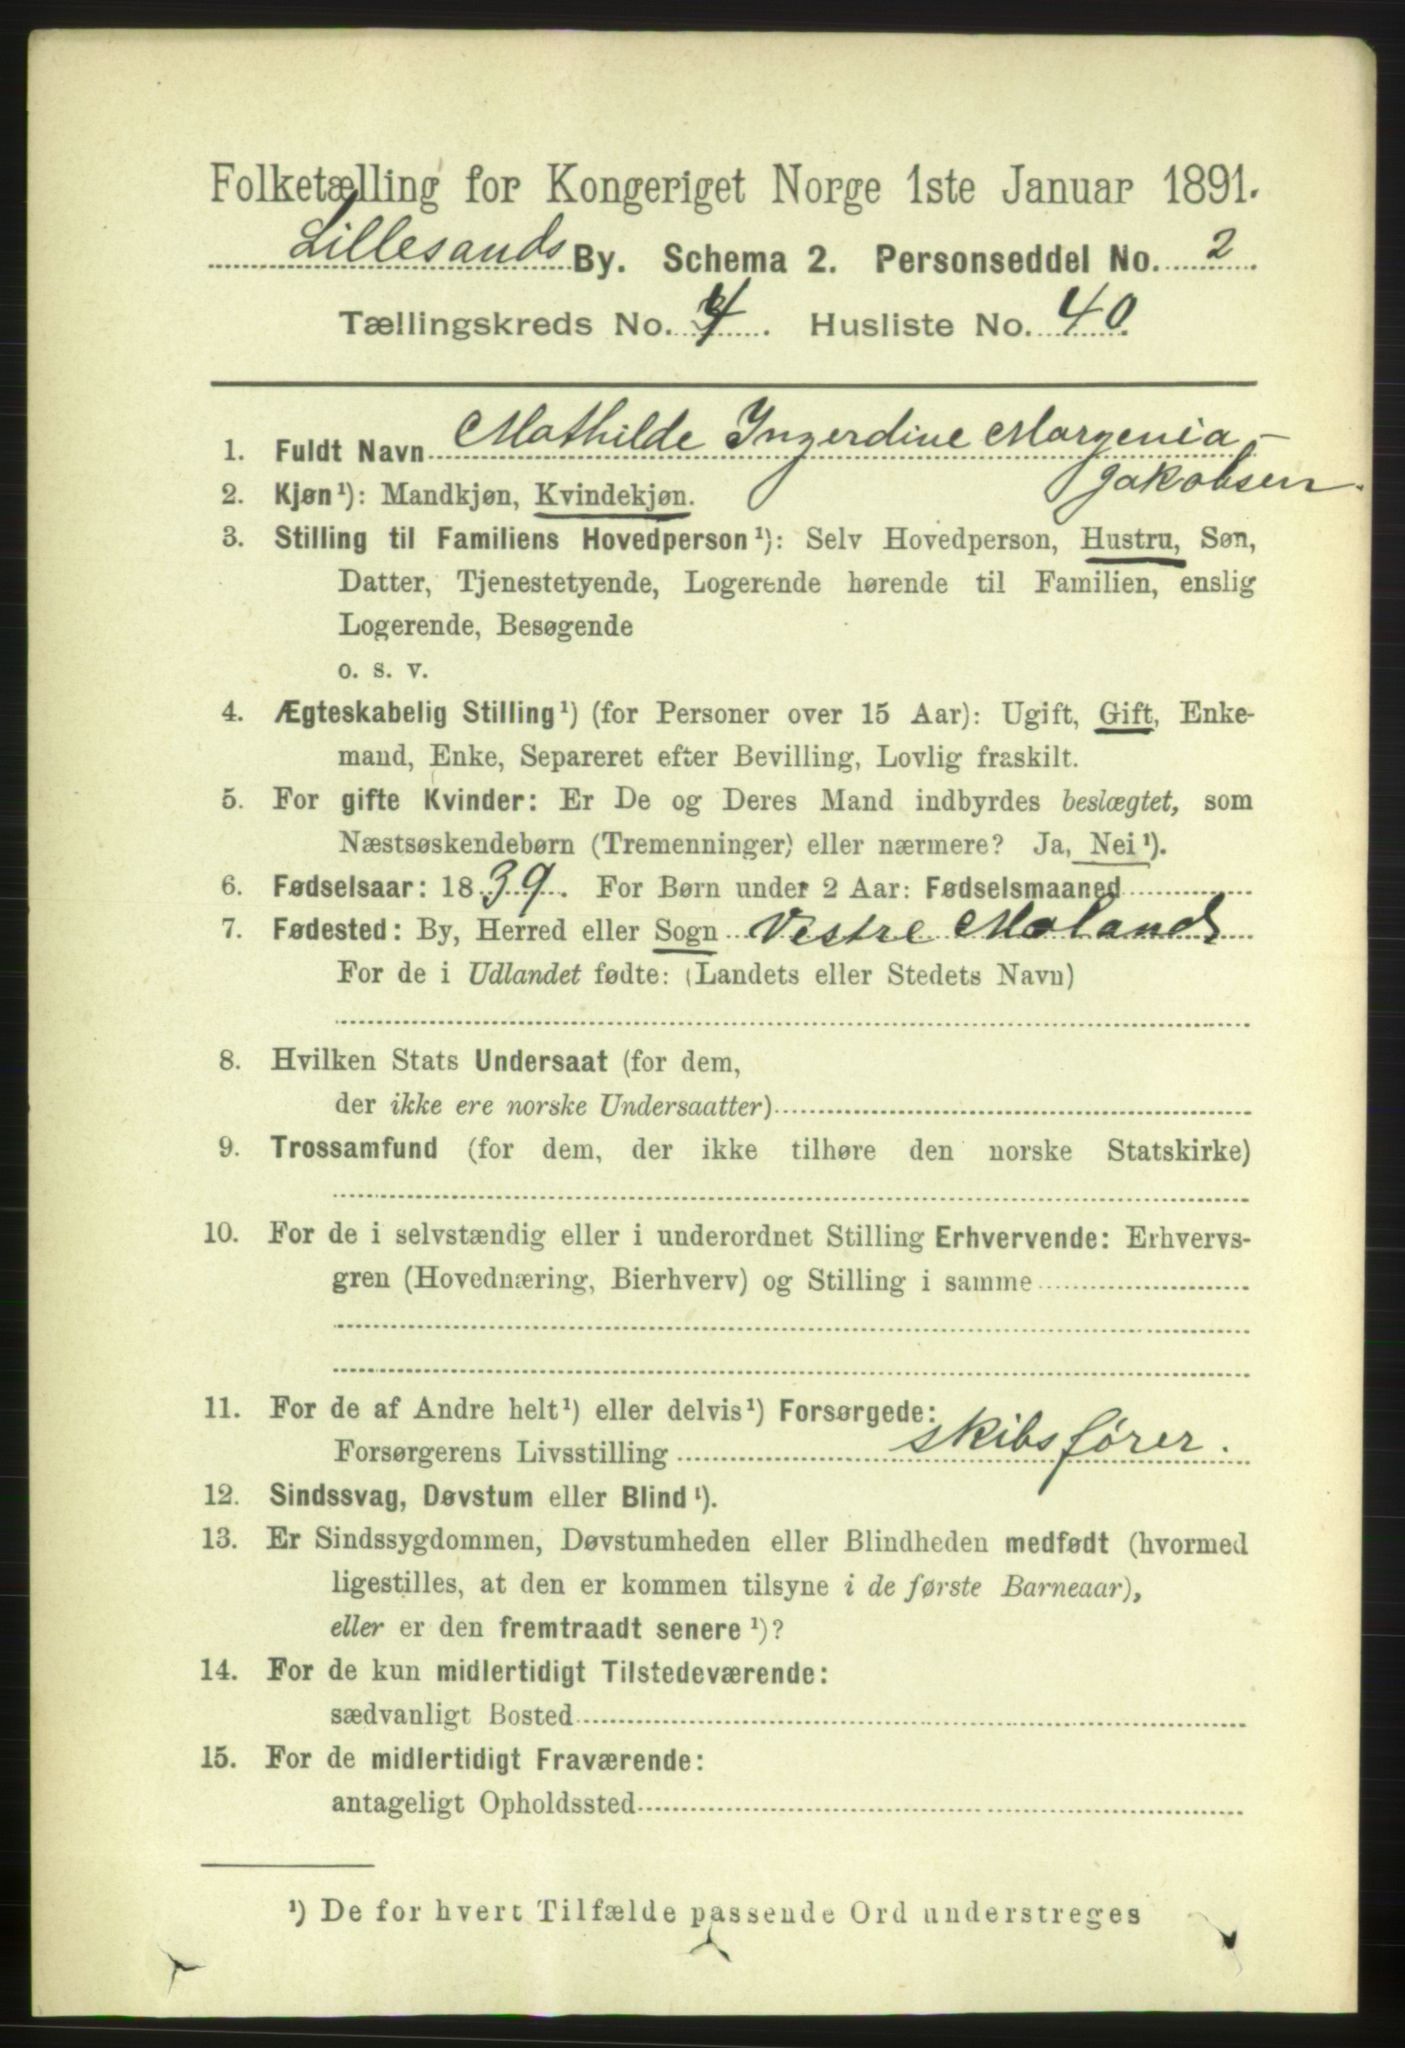 Folketælling for Kongeriget Norge 1ste Januar 1891.
Lillesands By. Schema 2. Personseddel No. 2
Tællingskreds No. 4. Husliste No. 40.
1. Fuldt Navn Mathilde Ingerdine Margenia
Jakobsen.
2. Kjøn¹): Mandkjøn, Kvindekjøn.
3. Stilling til Familiens Hovedperson¹): Selv Hovedperson, Hustru, Søn,
Datter, Tjenestetyende, Logerende hørende til Familien, enslig
Logerende, Besøgende
o. s. v.
4. Ægteskabelig Stilling¹) (for Personer over 15 Aar): Ugift, Gift, Enke-
mand, Enke, Separeret efter Bevilling, Lovlig fraskilt.
5. For gifte Kvinder: Er De og Deres Mand indbyrdes beslægtet, som
Næstsøskendebørn (Tremenninger) eller nærmere? Ja, Nei¹).
6. Fødselsaar: 1839. For Børn under 2 Aar: Fødselsmaaned
7. Fødested: By, Herred eller Sogn Vestre Moland
For de i Udlandet fødte: (Landets eller Stedets Navn)
8. Hvilken Stats Undersaat (for dem,
der ikke ere norske Undersaatter)
9. Trossamfund (for dem, der ikke tilhøre den norske Statskirke)
10. For de i selvstændig eller i underordnet Stilling Erhvervende: Erhvervs-
gren (Hovednæring, Bierhverv) og Stilling i samme
11. For de af Andre helt¹) eller delvis¹) Forsørgede:
Forsørgerens Livsstilling skibsfører.
12. Sindssvag, Døvstum eller Blind¹).
13. Er Sindssygdommen, Døvstumheden eller Blindheden medfødt (hvormed
ligestilles, at den er kommen tilsyne i de første Barneaar),
eller er den fremtraadt senere¹)?
14. For de kun midlertidigt Tilstedeværende:
sædvanligt Bosted
15. For de midlertidigt Fraværende:
antageligt Opholdssted
¹) De for hvert Tilfælde passende Ord understreges